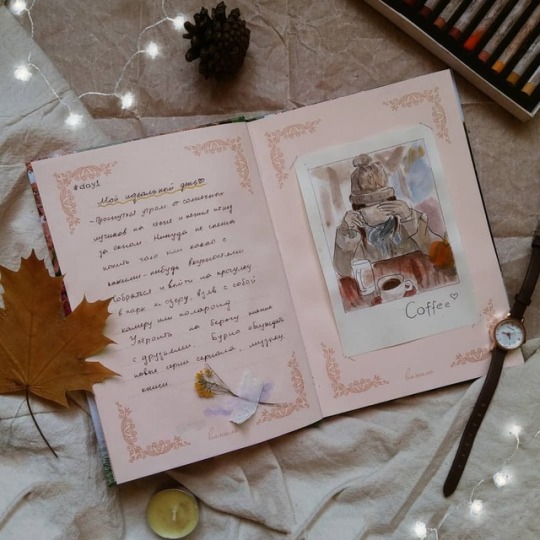 #day1
Мой идеальный день
- Проснуться утром от солнечных
лучиков на щеке и пения птиц
за окном. Никуда не спеша
попить чаю или какао с
какими-нибудь вкусностями
собраться и выйти на прогулку
в парк к озеру, взяв с собой
камеру или полароид
Устроить на берегу пикник
с друзьями. Бурно обсуждать
новые серии сериала, музыку,
книги.
Coffee♡